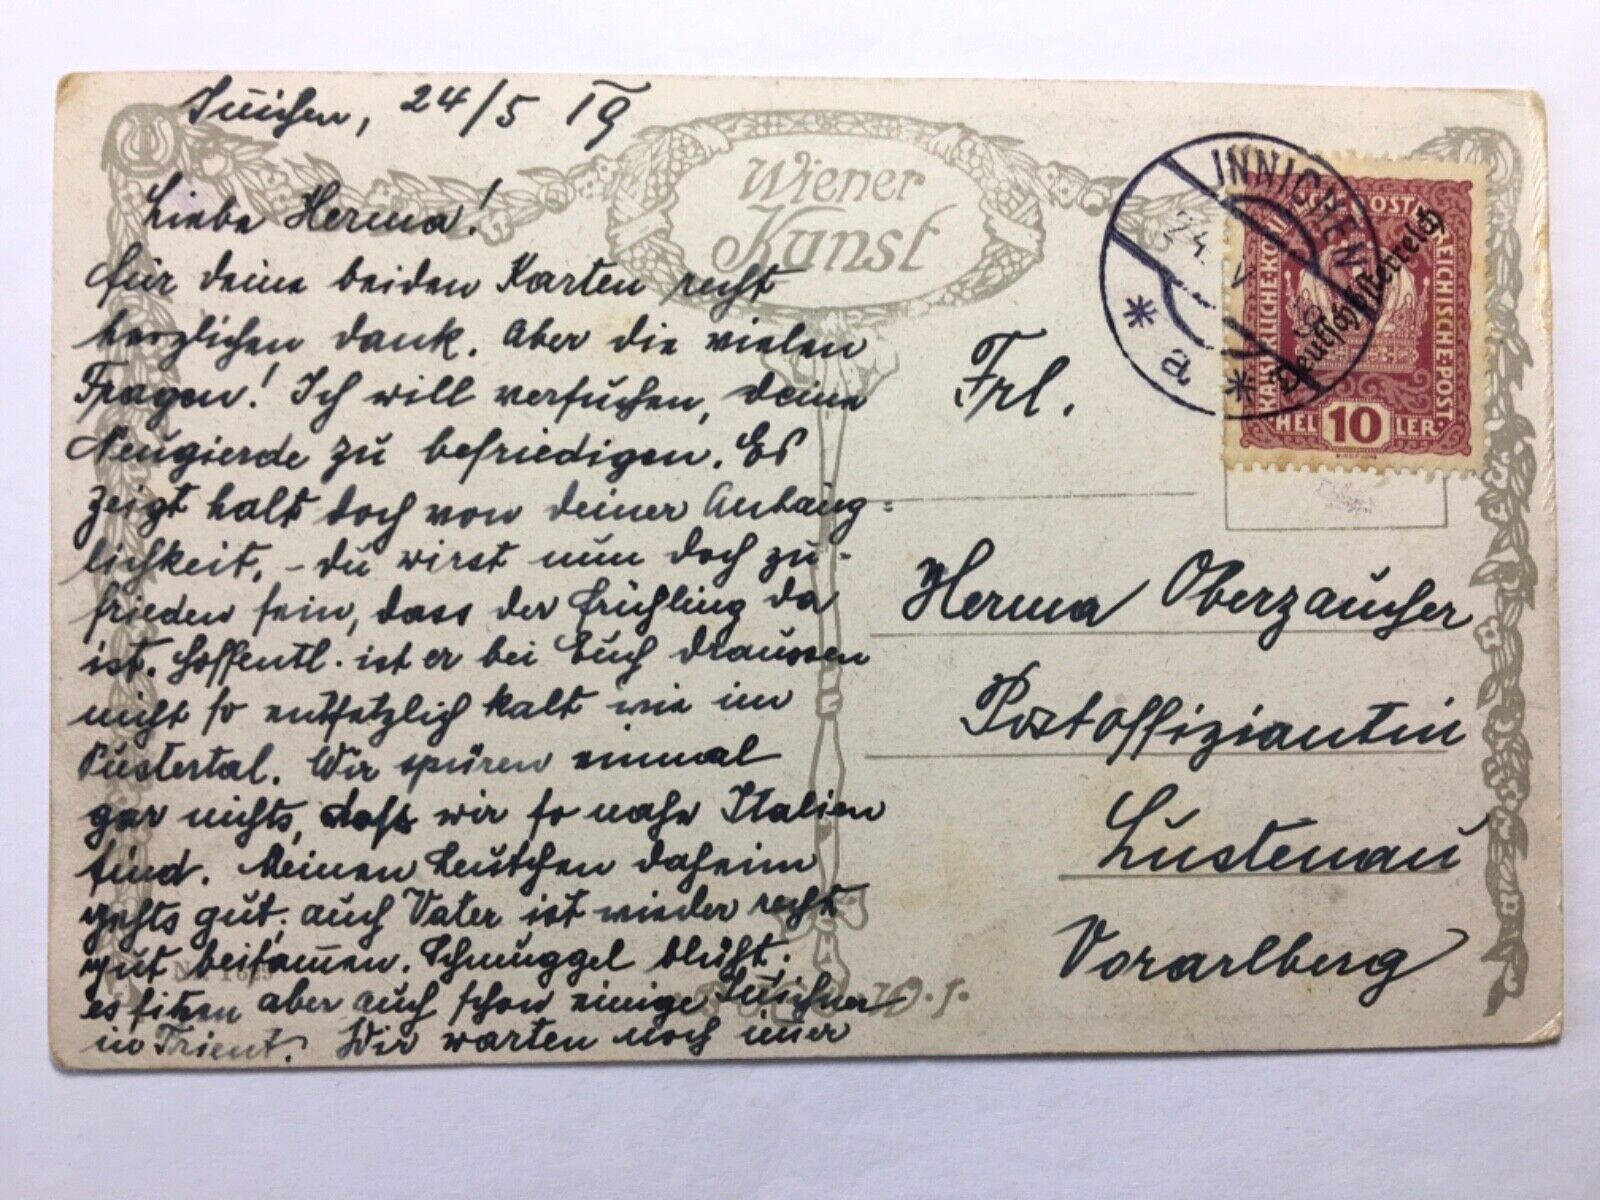 Innichen, 24/5 19
Wiener
Kunst
Liebe Herma!
für deine beiden Karten recht
herzlichen Dank. Aber die vielen
Fragen! Ich will versuchen, deine
Neugierde zu befriedigen. Es
zeigt halt doch von deiner Anhäng=
lichkeit. - du wirst nun doch zu-
frieden sein, dass der Frühling da
ist. Hoffentl. ist er bei Euch draussen
nicht so entsetzlich kalt wie im
Pustertal. Wir spüren einmal
gar nichts, dass wir so nahe Italien
sind. Meinen Leutchen daheim
gehts gut; auch Vater ist wieder recht
gut beisamen. Schmuggel blüht.
es sitzen aber auch schon einige Inichner
in Trient. Wir warten noch imer
INNICHEN
24. V
* a *
KAISERLICHE KÖNIGLICHE ÖSTERREICHISCHE POST
Deutschösterreich
HEL 10 LER
Frl.
Herma Oberzaucher
Postoffiziantin
Lustenau
Vorarlberg